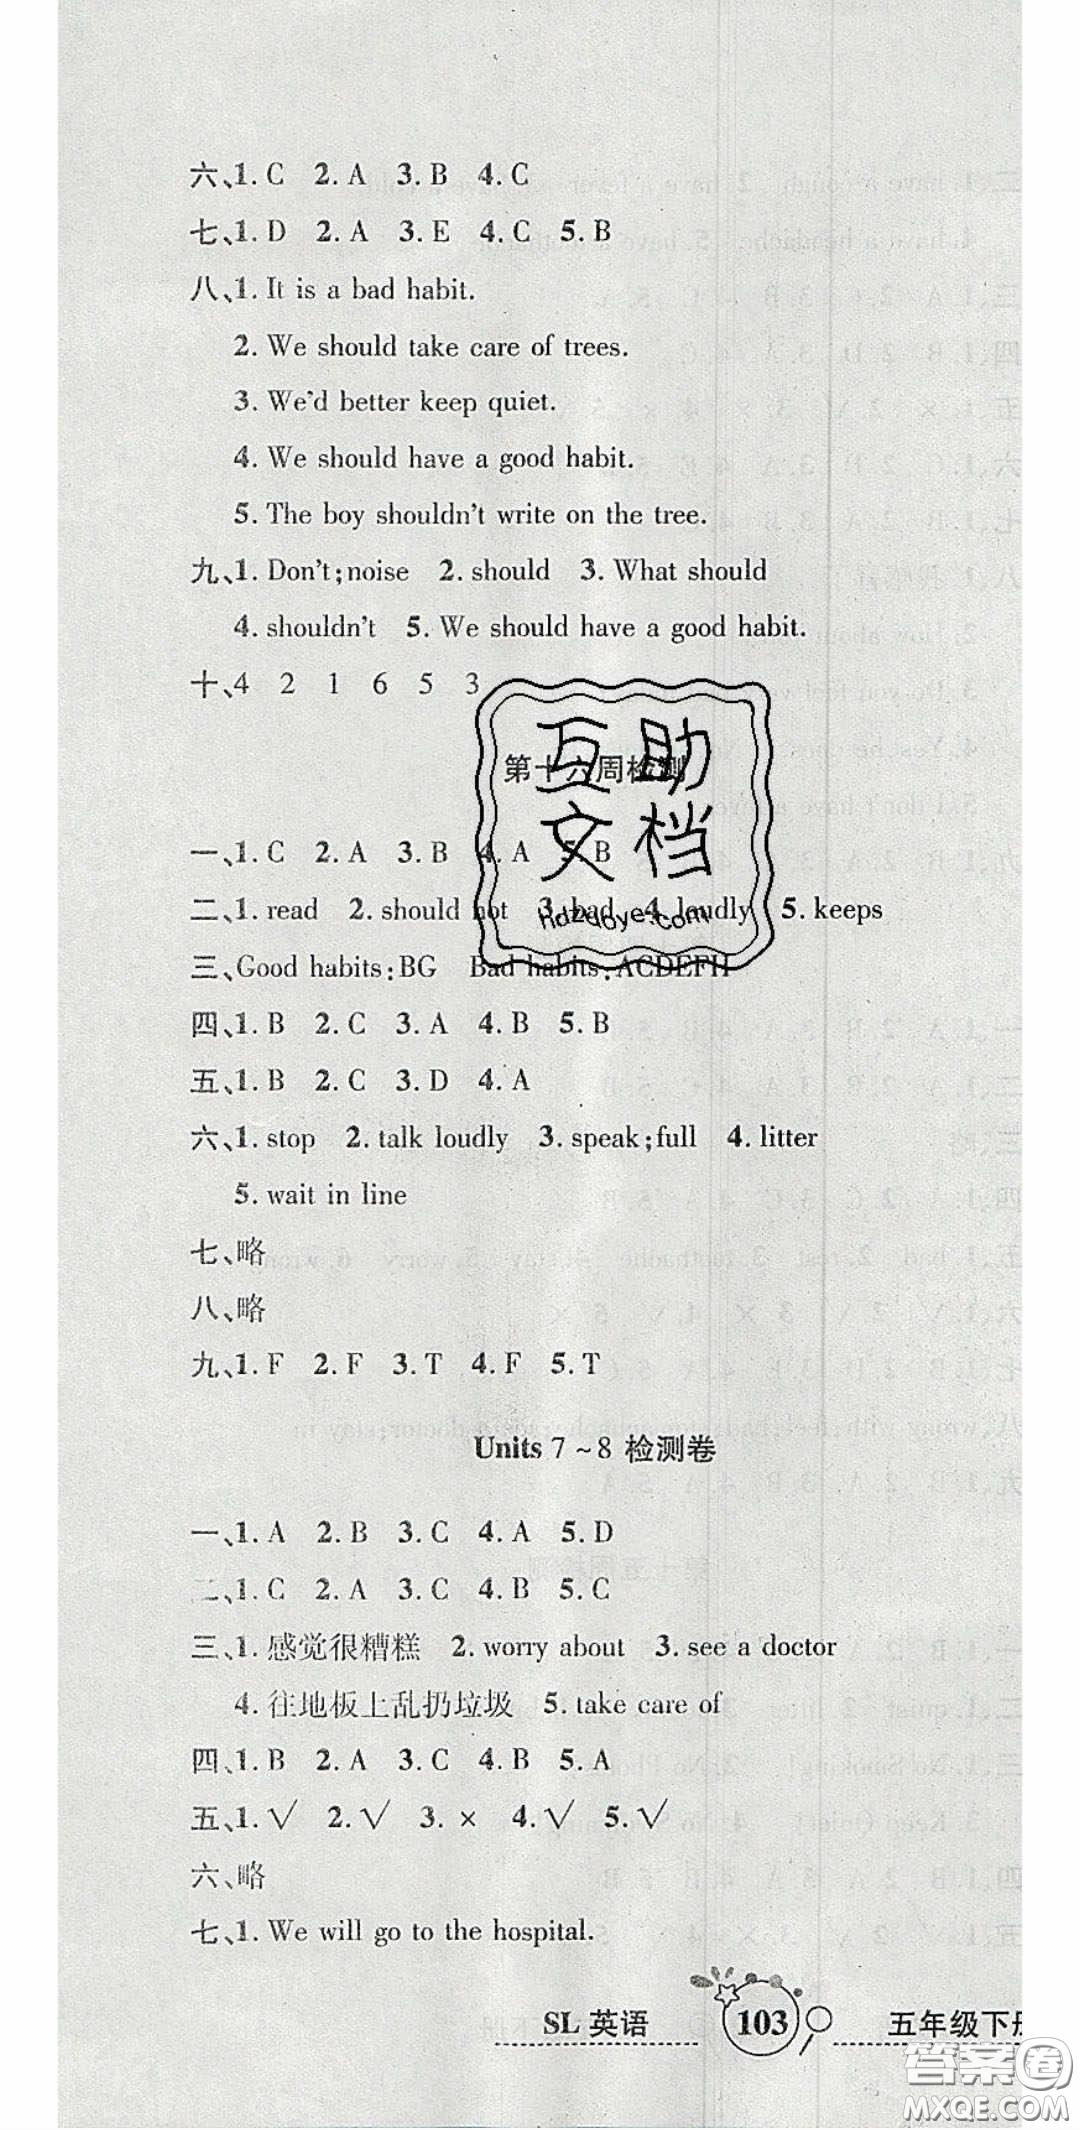 六、1. C 2. A 3. B 4. C
七、1. D 2. A 3. E 4. C 5. B
八、1. It is a bad habit.
2. We should take care of trees.
3. We'd better keep quiet.
4. We should have a good habit.
5. The boy shouldn't write on the tree.
九、1. Don't;noise 2. should 3. What should
4. shouldn't 5. We should have a good habit.
十、4 2 1 6 5 3
第十六周检测
互助
文档
hdzuoye.com
一、1. C 2. A 3. B 4. A 5. B
二、1. read 2. should not 3. bad 4. loudly 5. keeps
三、Good habits:BG Bad habits:ACDEFH
四、1. B 2. C 3. A 4. B 5. B
五、1. B 2. C 3. D 4. A
六、1. stop 2. talk loudly 3. speak;full 4. litter
5. wait in line
七、略
八、略
九、1. F 2. F 3. T 4. F 5. T
Units 7~8 检测卷
一、1. A 2. B 3. C 4. A 5. D
二、1. C 2. A 3. C 4. B 5. C
三、1. 感觉很糟糕 2. worry about 3. see a doctor
4. 往地板上乱扔垃圾 5. take care of
四、1. B 2. A 3. C 4. B 5. A
五、1. √ 2. √ 3. × 4. √ 5. √
六、略
七、1. We will go to the hospital.
SL 英语 103 五年级下册
答案卷
MXQE.COM